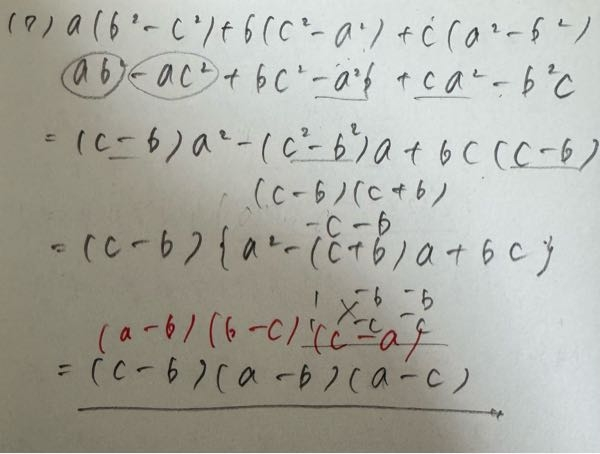 (7) a(b²-c²)+b(c²-a²)+c(a²-b²)
ab²-ac²+bc²-a²b+ca²-b²c
=(c-b)a²-(c²-b²)a+bc(c-b)
(c-b)(c+b)
-c-b
=(c-b){a²-(c+b)a+bc}
1 -b -b
1 -c -c
(a-b)(b-c)(c-a)
=(c-b)(a-b)(a-c)